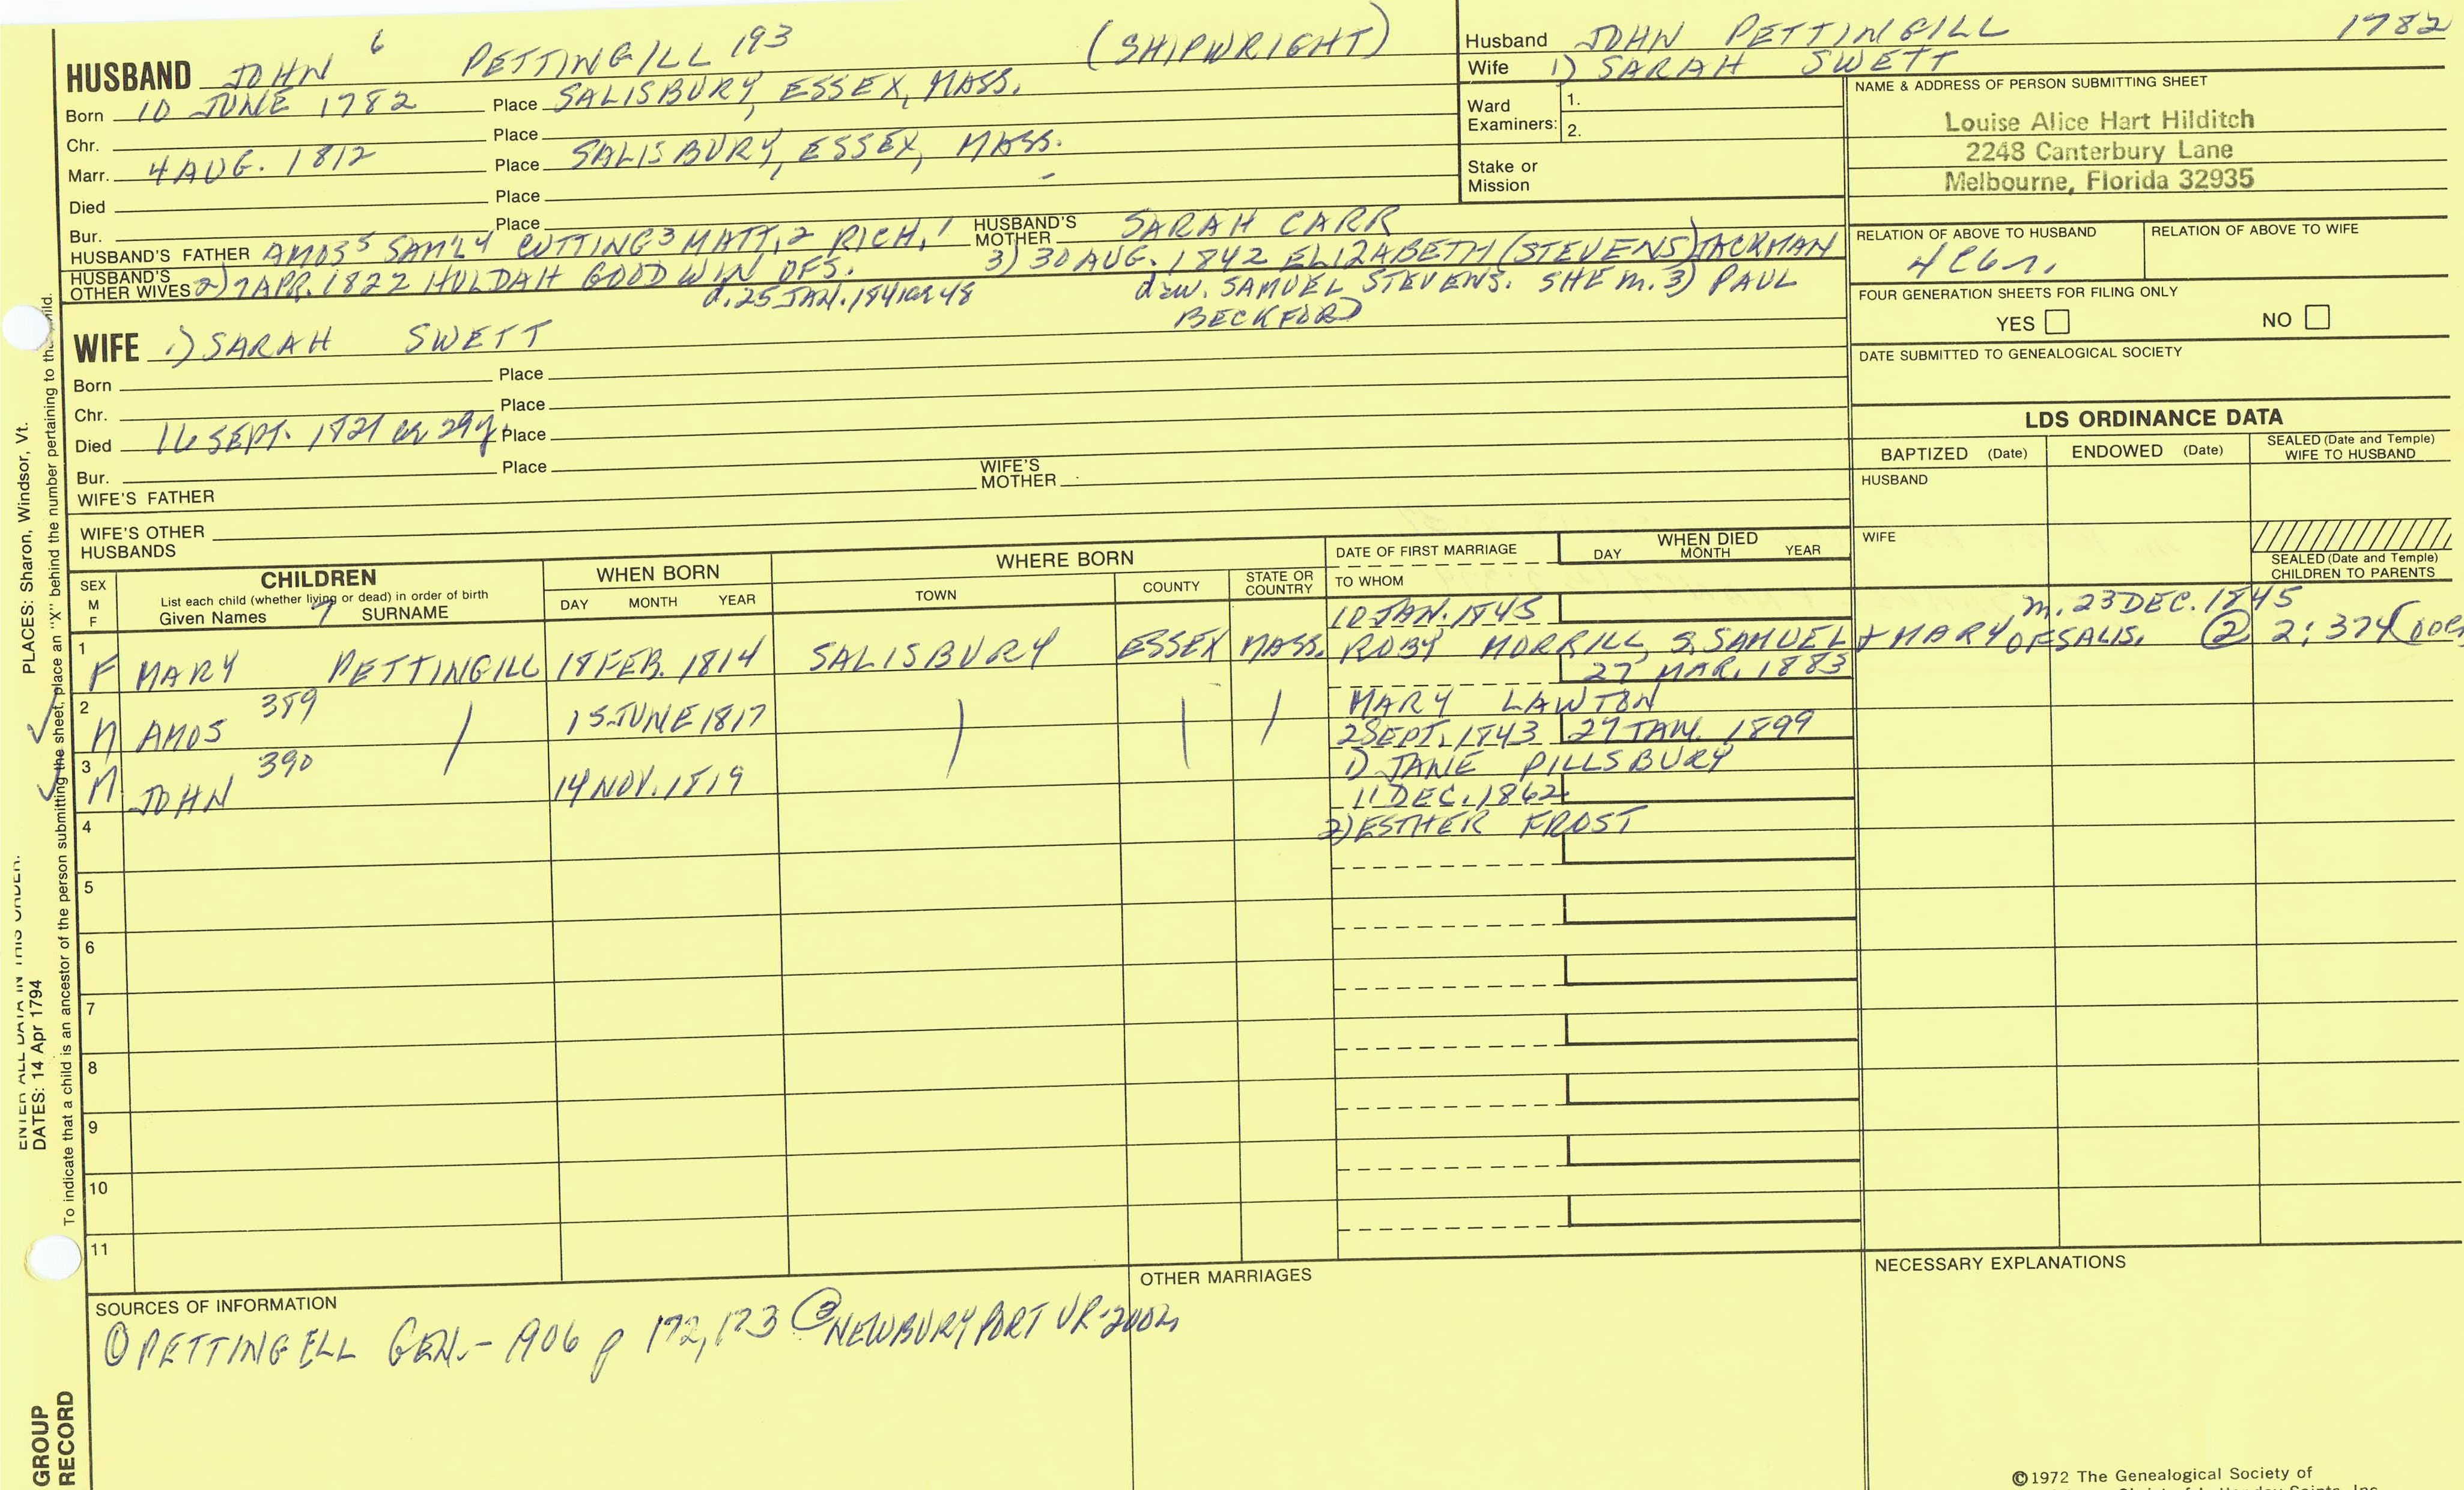 HUSBAND JOHN 6 PETTINGILL 193 (SHIPWRIGHT)
Born 10 JUNE 1782 Place SALISBURY, ESSEX, MASS.
Chr. Place
Marr. 4 AUG. 1812 Place SALISBURY, ESSEX, MASS.
Died Place
Bur. Place
HUSBAND'S FATHER AMOS5 SAM'L4 CUTTING3 MATT.2 RICH.1 HUSBAND'S MOTHER SARAH CARR
HUSBAND'S OTHER WIVES 2) 7 APR. 1822 HULDAH GOODWIN OF S. 3) 30 AUG. 1842 ELIZABETH (STEVENS) JACKMAN
d. 25 JAN. 1841 or 48 d & w. SAMUEL STEVENS. SHE m. 3) PAUL
BECKFORD
WIFE 1) SARAH SWETT
Born Place
Chr. Place
Died 16 SEPT. 1821 29y. Place
Bur. Place
WIFE'S FATHER WIFE'S MOTHER
WIFE'S OTHER HUSBANDS
Husband JOHN PETTINGILL 1782
Wife 1) SARAH SWETT
Ward Examiners: 1.
2.
Stake or Mission
NAME & ADDRESS OF PERSON SUBMITTING SHEET
Louise Alice Hart Hilditch
2248 Canterbury Lane
Melbourne, Florida 32935
RELATION OF ABOVE TO HUSBAND RELATION OF ABOVE TO WIFE
FOUR GENERATION SHEETS FOR FILING ONLY
YES NO
DATE SUBMITTED TO GENEALOGICAL SOCIETY
LDS ORDINANCE DATA
BAPTIZED (Date) ENDOWED (Date) SEALED (Date and Temple) WIFE TO HUSBAND
HUSBAND
WIFE
SEALED (Date and Temple) CHILDREN TO PARENTS
SEX M F
CHILDREN
List each child (whether living or dead) in order of birth
Given Names 7 SURNAME
WHEN BORN
DAY MONTH YEAR
WHERE BORN
TOWN COUNTY STATE OR COUNTRY
DATE OF FIRST MARRIAGE
TO WHOM
WHEN DIED
DAY MONTH YEAR
10 JAN. 1845 m. 23 DEC. 1845
1 F MARY PETTINGILL 18 FEB. 1814 SALISBURY ESSEX MASS. ROBY MORRILL, S. SAMUEL & MARY OF SALIS. ② 2:374
27 MAR. 1883
2 M AMOS 389 15 JUNE 1817 MARY LAWTON
2 SEPT. 1843 27 JAN. 1899
3 M JOHN 390 14 NOV. 1819 1) JANE PILLSBURY
11 DEC. 1862
4 2) ESTHER FROST
5
6
7
8
9
10
11
SOURCES OF INFORMATION
① PETTINGELL GEN. - 1906 p 172, 173 ② NEWBURYPORT VR-
OTHER MARRIAGES
NECESSARY EXPLANATIONS
©1972 The Genealogical Society of
PLACES: Sharon, Windsor, Vt.
ENTER ALL DATA IN THIS ORDER:
DATES: 14 Apr 1794
To indicate that a child is an ancestor of the person submitting the sheet, place an "X" behind the number pertaining to the child.
GROUP
RECORD